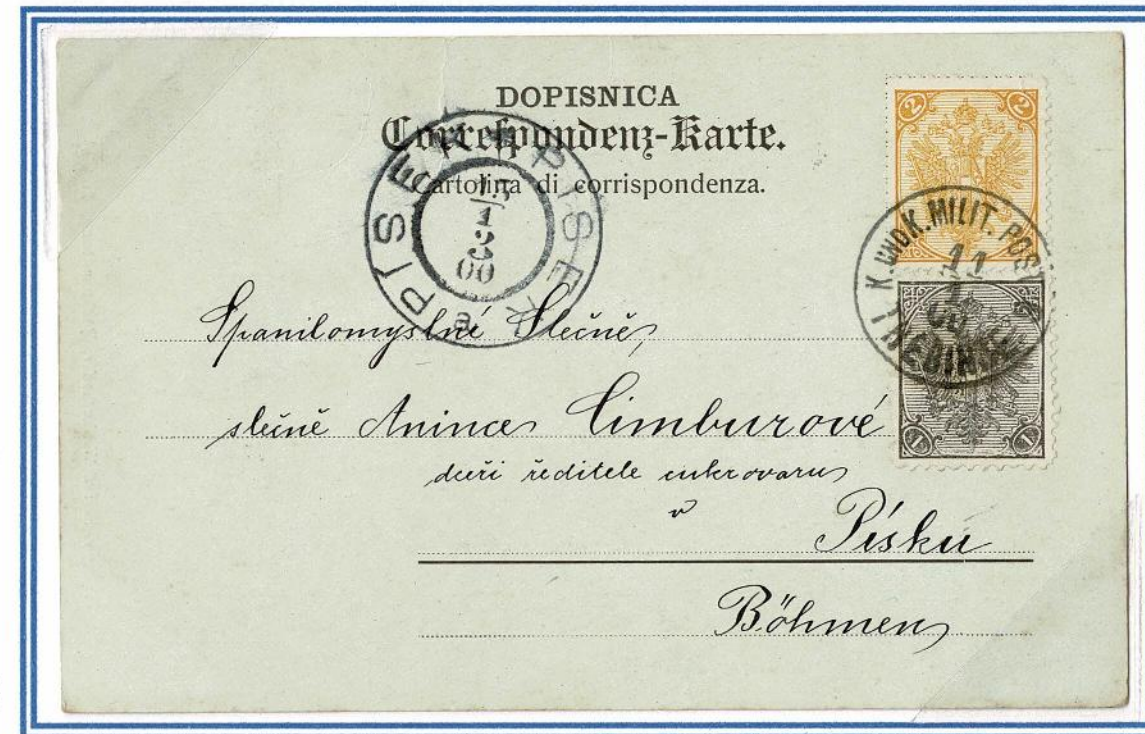 DOPISNICA
Correspondenz-Karte.
Cartolina di corrispondenza.
PISEK PISEK
00
2
K. UND K. MILIT. POST
11
TREBINJE
1 1
Spanilomyslné Slečně,
slečně Anince Cimburové
dceři ředitele cukrovaru
v Písku
Böhmen